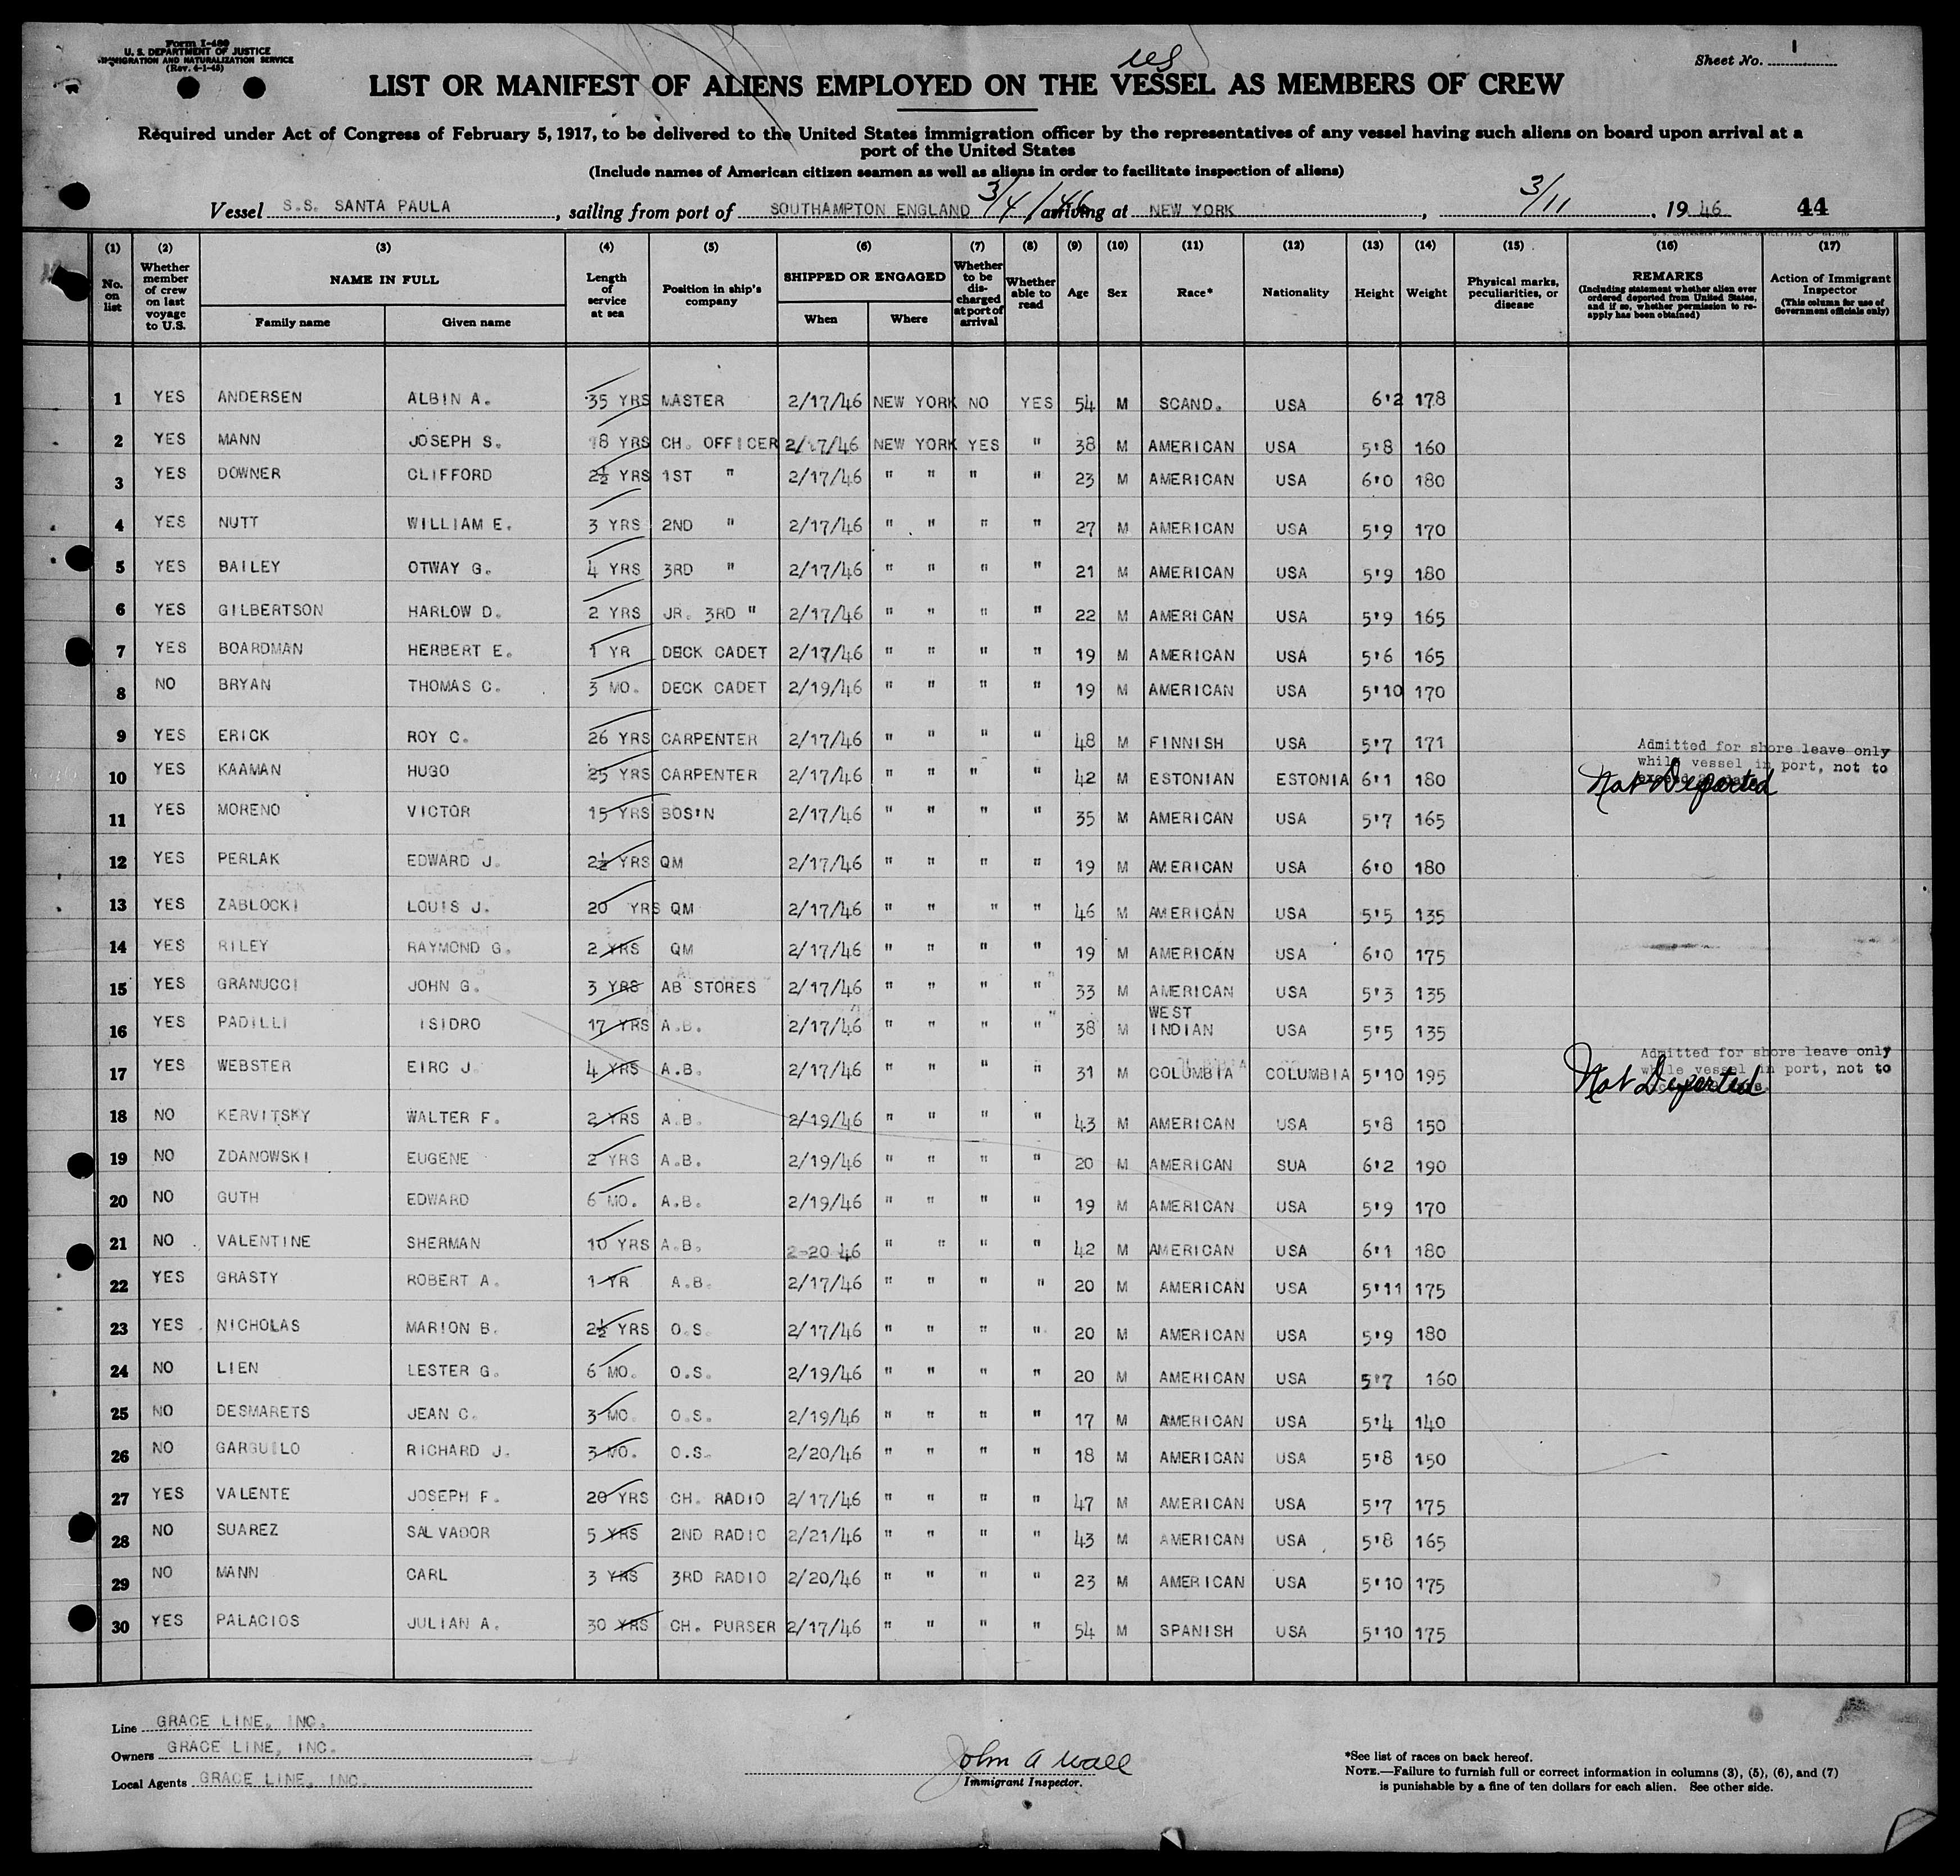 Form I-480
U. S. DEPARTMENT OF JUSTICE
IMMIGRATION AND NATURALIZATION SERVICE
(Rev. 4-1-45)
Sheet No. 1
yes
LIST OR MANIFEST OF ALIENS EMPLOYED ON THE VESSEL AS MEMBERS OF CREW
Required under Act of Congress of February 5, 1917, to be delivered to the United States immigration officer by the representatives of any vessel having such aliens on board upon arrival at a
port of the United States
(Include names of American citizen seamen as well as aliens in order to facilitate inspection of aliens)
Vessel S.S. SANTA PAULA, sailing from port of SOUTHAMPTON ENGLAND 3/4/46, arriving at NEW YORK, 3/11, 1946 44
(1) (2) (3) (4) (5) (6) (7) (8) (9) (10) (11) (12) (13) (14) (15) (16) (17)
No. on list
Whether member of crew on last voyage to U.S.
NAME IN FULL
Family name Given name
Length of service at sea
Position in ship's company
SHIPPED OR ENGAGED
When Where
Whether to be discharged at port of arrival
Whether able to read
Age
Sex
Race*
Nationality
Height
Weight
Physical marks, peculiarities, or disease
REMARKS
(Including statement whether alien ever ordered deported from United States, and if so, whether permission to reapply has been obtained)
Action of Immigrant Inspector
(This column for use of Government officials only)
1 YES ANDERSEN ALBIN A. 35 YRS MASTER 2/17/46 NEW YORK NO YES 54 M SCAND. USA 6'2 178
2 YES MANN JOSEPH S. 18 YRS CH. OFFICER 2/17/46 NEW YORK YES " 38 M AMERICAN USA 5'8 160
3 YES DOWNER CLIFFORD 2½ YRS 1ST " 2/17/46 " " " " 23 M AMERICAN USA 6'0 180
4 YES NUTT WILLIAM E. 3 YRS 2ND " 2/17/46 " " " " 27 M AMERICAN USA 5'9 170
5 YES BAILEY OTWAY G. 4 YRS 3RD " 2/17/46 " " " " 21 M AMERICAN USA 5'9 180
6 YES GILBERTSON HARLOW D. 2 YRS JR. 3RD " 2/17/46 " " " " 22 M AMERICAN USA 5'9 165
7 YES BOARDMAN HERBERT E. 1 YR DECK CADET 2/17/46 " " " " 19 M AMERICAN USA 5'6 165
8 NO BRYAN THOMAS C. 3 MO. DECK CADET 2/19/46 " " " " 19 M AMERICAN USA 5'10 170
9 YES ERICK ROY C. 26 YRS CARPENTER 2/17/46 " " " " 48 M FINNISH USA 5'7 171
10 YES KAAMAN HUGO 25 YRS CARPENTER 2/17/46 " " " " 42 M ESTONIAN ESTONIA 6'1 180
Admitted for shore leave only
while vessel in port, not to
Not Deported
11 YES MORENO VICTOR 15 YRS BOS'N 2/17/46 " " " " 35 M AMERICAN USA 5'7 165
12 YES PERLAK EDWARD J. 2½ YRS QM 2/17/46 " " " " 19 M AMERICAN USA 6'0 180
13 YES ZABLOCKI LOUIS J. 20 YRS QM 2/17/46 " " " " 46 M AMERICAN USA 5'5 135
14 YES RILEY RAYMOND G. 2 YRS QM 2/17/46 " " " " 19 M AMERICAN USA 6'0 175
15 YES GRANUCCI JOHN G. 3 YRS AB STORES 2/17/46 " " " " 33 M AMERICAN USA 5'3 135
16 YES PADILLI ISIDRO 17 YRS A.B. 2/17/46 " " " " 38 M WEST INDIAN USA 5'5 135
17 YES WEBSTER EIRC J 4 YRS A.B. 2/17/46 " " " " 31 M COLUMBIA COLUMBIA 5'10 195
Admitted for shore leave only
while vessel in port, not to
Not Deported
18 NO KERVITSKY WALTER F. 2 YRS A.B. 2/19/46 " " " " 43 M AMERICAN USA 5'8 150
19 NO ZDANOWSKI EUGENE 2 YRS A.B. 2/19/46 " " " " 20 M AMERICAN SUA 6'2 190
20 NO GUTH EDWARD 6 MO. A.B. 2/19/46 " " " " 19 M AMERICAN USA 5'9 170
21 NO VALENTINE SHERMAN 10 YRS A.B. 2-20 46 " " " " 42 M AMERICAN USA 6'1 180
22 YES GRASTY ROBERT A. 1 YR A.B. 2/17/46 " " " " 20 M AMERICAN USA 5'11 175
23 YES NICHOLAS MARION B. 2½ YRS O.S. 2/17/46 " " " " 20 M AMERICAN USA 5'9 180
24 NO LIEN LESTER G. 6 MO. O.S. 2/19/46 " " " " 20 M AMERICAN USA 5'7 160
25 NO DESMARETS JEAN C. 3 MO. O.S. 2/19/46 " " " " 17 M AMERICAN USA 5'4 140
26 NO GARGUILO RICHARD J. 3 MO. O.S. 2/20/46 " " " " 18 M AMERICAN USA 5'8 150
27 YES VALENTE JOSEPH F. 20 YRS CH. RADIO 2/17/46 " " " " 47 M AMERICAN USA 5'7 175
28 NO SUAREZ SALVADOR 5 YRS 2ND RADIO 2/21/46 " " " " 43 M AMERICAN USA 5'8 165
29 NO MANN CARL 3 YRS 3RD RADIO 2/20/46 " " " " 23 M AMERICAN USA 5'10 175
30 YES PALACIOS JULIAN A. 30 YRS CH. PURSER 2/17/46 " " " " 54 M SPANISH USA 5'10 175
Line GRACE LINE, INC.
Owners GRACE LINE, INC.
Local Agents GRACE LINE, INC.
John A Wall
Immigrant Inspector.
*See list of races on back hereof.
NOTE.—Failure to furnish full or correct information in columns (3), (5), (6), and (7)
is punishable by a fine of ten dollars for each alien. See other side.